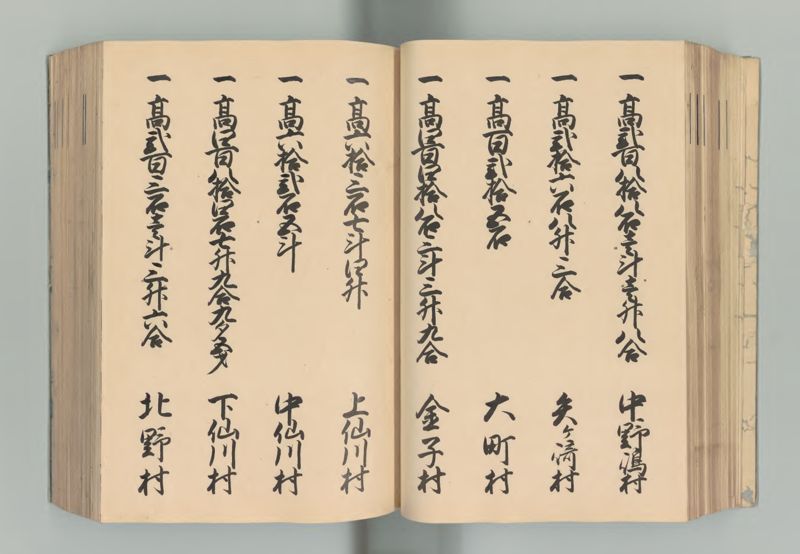 一 高弐百八拾八石壱斗壱升八合 中野嶋村
一 高弐拾六石八升二合 矢ヶ崎村
一 高百弐拾五石 大町村
一 高四百四拾八石二斗三升九合 金子村
一 高六拾三石七斗四升 上仙川村
一 高六拾弐石五斗 中仙川村
一 高四百八拾四石七升九合九夕 下仙川村
一 高弐百三石壱斗三升六合 北野村